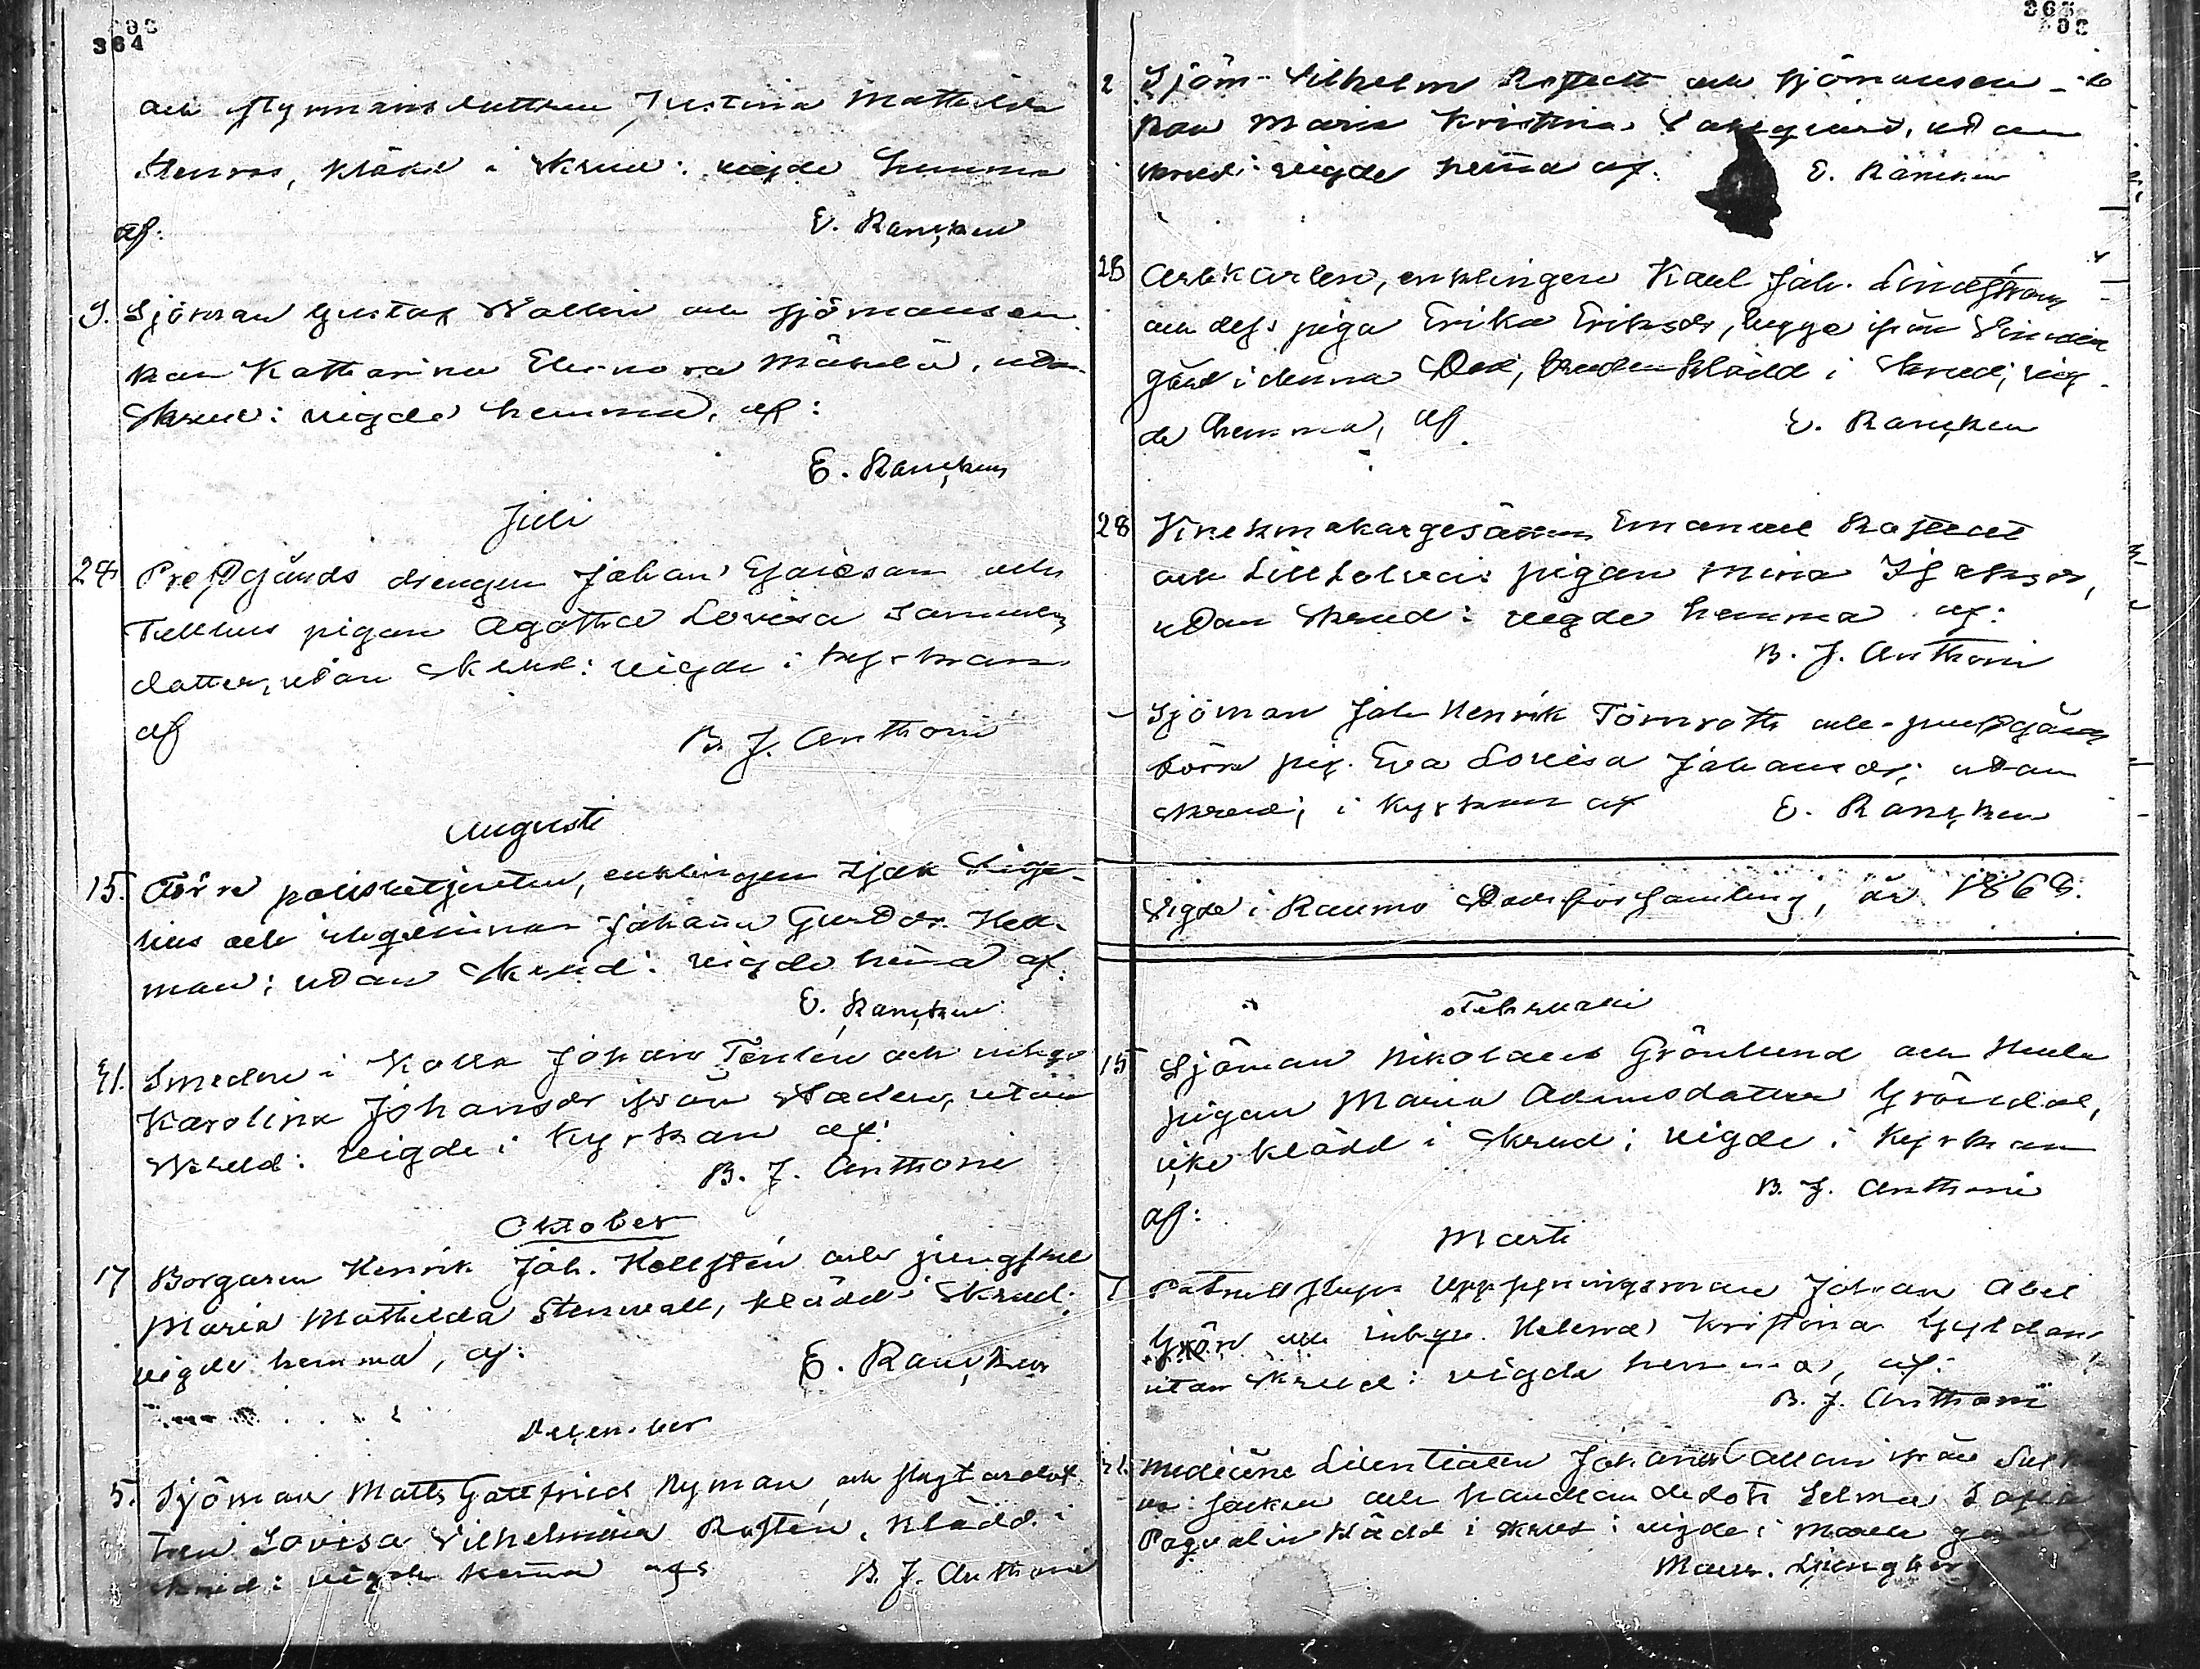 364
och styrmansdottren Justina Mathilda
Stenros, klädd i skrud: vigde hemma
af:
E. Rancken
9. Sjöman Gustaf Wallin och sjömansen-
kan Katharina Eleonora Mäkelä, utan
skrud: vigde hemma, af:
E. Rancken
Juli
24 Prestgårds drengen Johan Esaiesson och
Tullhus pigan Agatha Lovisa Samuels
datter, utan skrud: vigde i kyrkan
af
B. J. Anthoni
Augusti
15. Förre polisbetjenten, enklingen Isak
och inhysekvinnan Johanna Gustdr. Hed-
man; utan skrud: vigde hemma af:
E. Rancken
31. Smeden i Kolla Johan Tenlén och inhys
Karolina Johansdr ifrån Staden, utan
skrud: vigde i kyrkan af:
B. J. Anthoni
Oktober
17 Borgaren Henrik Joh. Hellstén och jungfrue
Maria Mathilda Stenwall, klädd i skrud;
vigde hemma, af:
E. Rancken
December
5. Sjöman Matts Gottfried Nyman och
tren Lovisa Vilhelmina Rostén, klädd i
skrud: vigde hemma af:
B. J. Anthoni
365
2 Sjöm. Vilhelm Rostedt och sjömansen-
kan Maria Kristina utan
skrud: vigde hemma af:
E. Rancken
25 Arbkarlen, enklingen Karl Joh. Lindström
och dess piga Erika Eriksdr, bygge ifrån
gård i denna Stad, bruden klädd i skrud; vig-
de hemma, af
E. Rancken
28 Krukmakargesällen Emanuel Rostedt
och pigan Mina Isaksdr,
utan skrud: vigde hemma af:
B. J. Anthoni
- Sjöman Joh Henrik Törnroth och prestgårds
förra pig. Eva Lovisa Johansdr; utan
skrud; i kyrkan af
E. Rancken
Vigde i Raumo Stadsförsamling, år 1869.
Februari
15 Sjöman Nikolaus Grönlund och
pigan Maria Adamsdatter Gröndal,
icke klädd i skrud; vigde i kyrkan
af:
B. J. Anthoni
Marti
7 Uppsyningsman Johan Abel
Grön och inhys. Helena Kristina Gyldén,
utan skrud: vigde hemma, af:
B. J. Anthoni
31. Medicine Licentiaten Johannes ifrån
och handlandedotr Selma Sofia
Paqvalin klädd i skrud: vigde i
Ljungberg